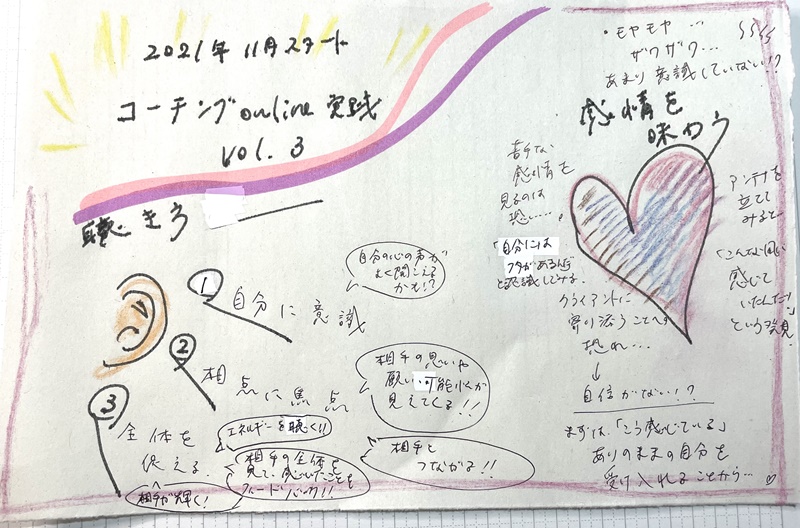 2021年 11月スタート
コーチング online 実践
vol. 3
聴きう
① 自分に意識
自分の心の声が
よく聞こえる
かも!?
② 相 点に焦点
相手の思いや
願い 可能性が
見えてくる!!
③ 全体を
捉える
エネルギーを聴く!!
相手の全体を
見て、感じたことを
フィードバック!!
相手が輝く!
相手と
つながる!!
・モヤモヤ…
ザワザワ…
あまり意識していない!?
感情を
味わう
苦手な
感情を
見るのは
恐い….
「自分には
フタがあるんだ」
と認識してみる。
クライアントに
寄り添うことへの
恐れ…
↓
自信がない!?
アンテナを
立てて
みると…
「こんな風に
感じて
いたんだ!」
という発見
まずは、「こう感じている」
ありのままの自分を
受け入れることから…♡